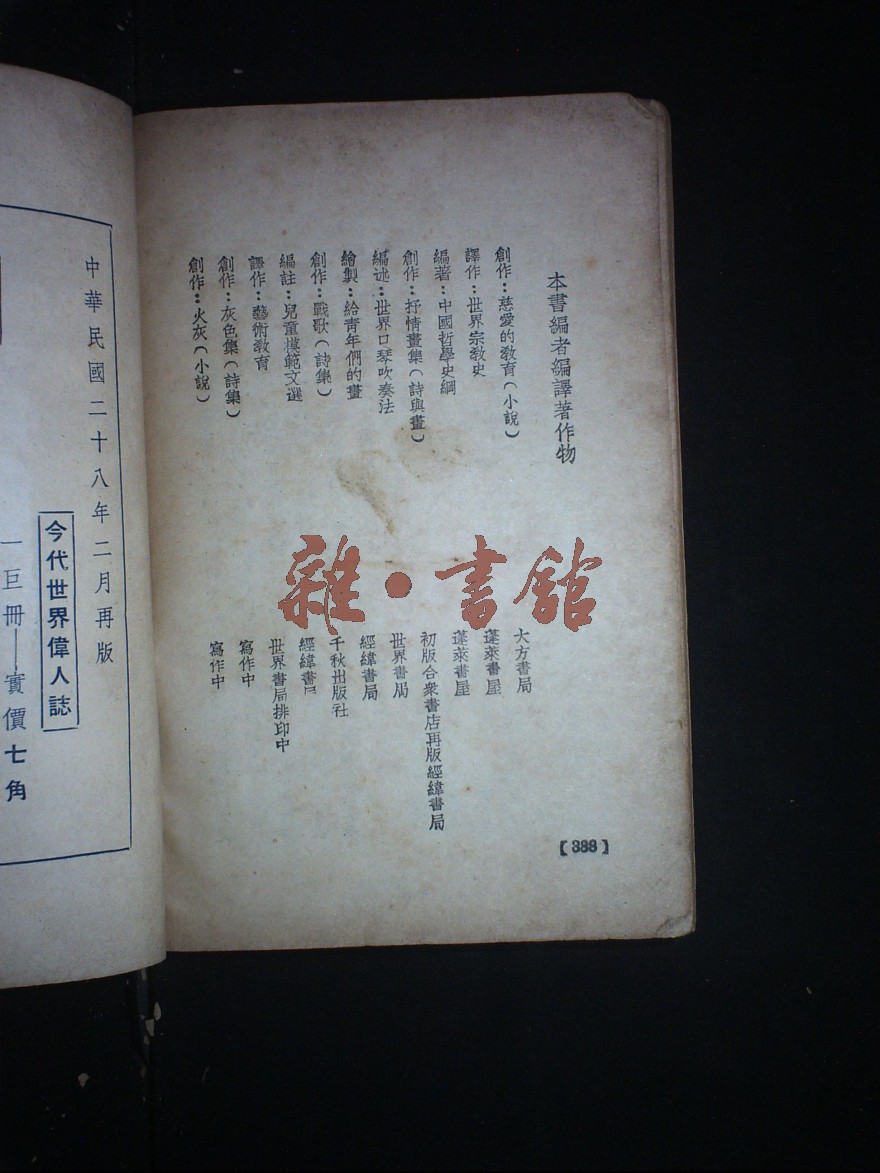 本書編者編譯著作物
創作：慈愛的教育（小說） 大方書局
譯作：世界宗教史 蓬萊書屋
編著：中國哲學史綱 蓬萊書屋
創作：抒情畫集（詩與畫） 初版合衆書店再版經緯書局
編述：世界口琴吹奏法 世界書局
繪製：給青年們的畫 經緯書局
創作：戰歌（詩集） 千秋出版社
編註：兒童模範文選 經緯書局
譯作：藝術教育 世界書局排印中
創作：灰色集（詩集） 寫作中
創作：火灰（小說） 寫作中
【388】
雜·書館
中華民國二十八年二月再版
今代世界偉人誌
一巨冊——實價七角